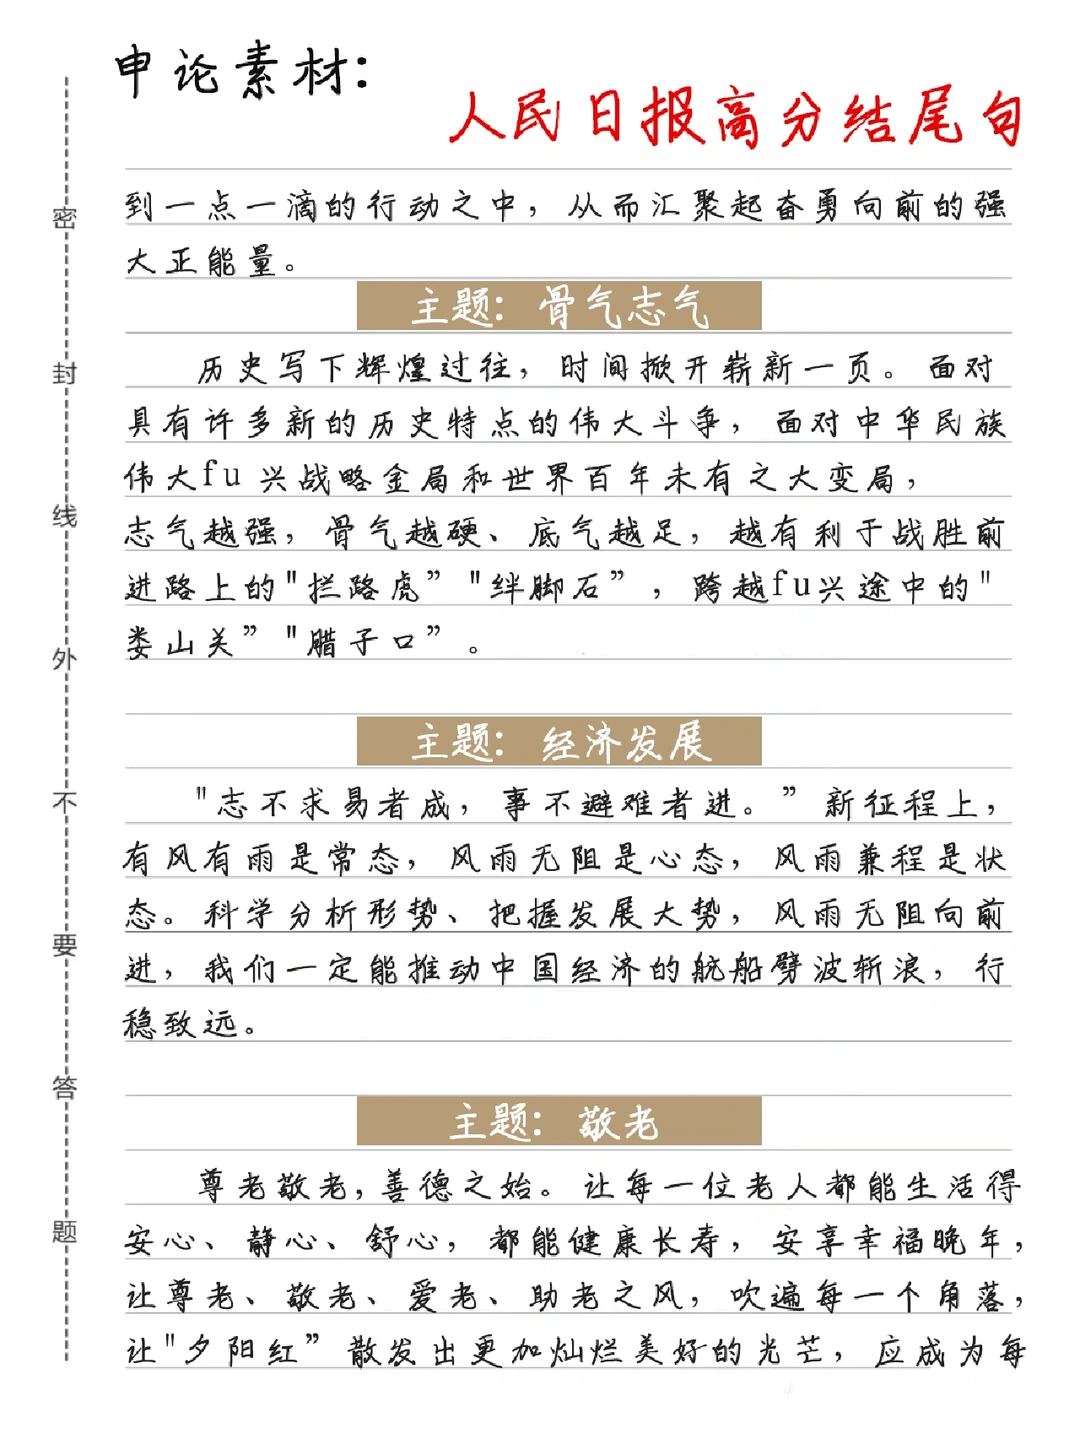 申论素材：
人民日报高分结尾句
到一点一滴的行动之中，从而汇聚起奋勇向前的强
大正能量。
主题：骨气志气
历史写下辉煌过往，时间掀开崭新一页。面对
具有许多新的历史特点的伟大斗争，面对中华民族
伟大fu兴战略金局和世界百年未有之大变局，
志气越强，骨气越硬、底气越足，越有利于战胜前
进路上的"拦路虎”"绊脚石”，跨越fu兴途中的"
娄山关”"腊子口”。
主题：经济发展
"志不求易者成，事不避难者进。”新征程上，
有风有雨是常态，风雨无阻是心态，风雨兼程是状
态。科学分析形势、把握发展大势，风雨无阻向前
进，我们一定能推动中国经济的航船劈波斩浪，行
稳致远。
主题：敬老
尊老敬老，善德之始。让每一位老人都能生活得
安心、静心、舒心，都能健康长寿，安享幸福晚年，
让尊老、敬老、爱老、助老之风，吹遍每一个角落，
让"夕阳红”散发出更加灿烂美好的光芒，应成为每
密
封
线
外
不
要
答
题